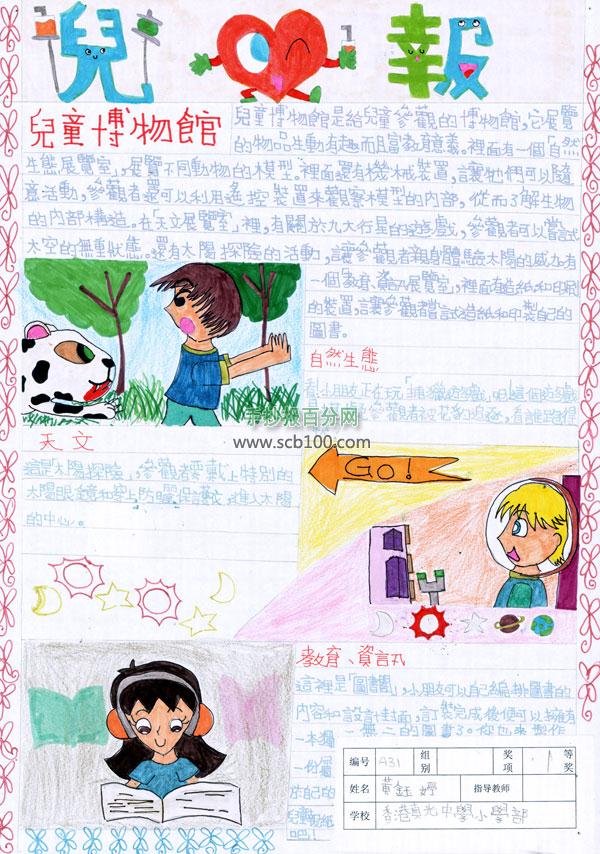 兒 報
兒童博物館
兒童博物館是給兒童參觀的博物館,它展覽
的物品生動有趣而且富教育意義。裡面有一個「自然
生態展覽室」,展覽不同動物的模型。裡面還有機械裝置,讓牠們可以隨
意活動,參觀者還可以利用遙控裝置來觀察模型的內部,從而了解生物
的內部構造。在「天文展覽室」裡,有關於九大行星的遊戲,參觀者可以嘗試
太空的無重狀態。還有太陽探險的活動,讓參觀者親身體驗太陽的威力。有
一個「教育、資訊展覽室」,裡面有造紙和印刷
的裝置,讓參觀者嘗試造紙和印製自己的
圖書。
自然生態
小朋友正在玩
參觀者
手抄报百分网
www.scb100.com
天文
這是太陽探險,參觀者要戴上特別的
太陽眼鏡和穿上防曬保護衣,進入太陽
的中心。
GO!
教育、資訊
這裡是「圖書閣」,小朋友可以自己編排圖書的
內容和設計封面,訂裝完成後便可以擁有
一本獨一無二的圖書了。你也來製作
一份屬
於自己的
兒童報紙
吧!
编号 A31 组别 奖项 1 等奖
姓名 黃鈺婷 指导教师
学校 香港真光中學小學部